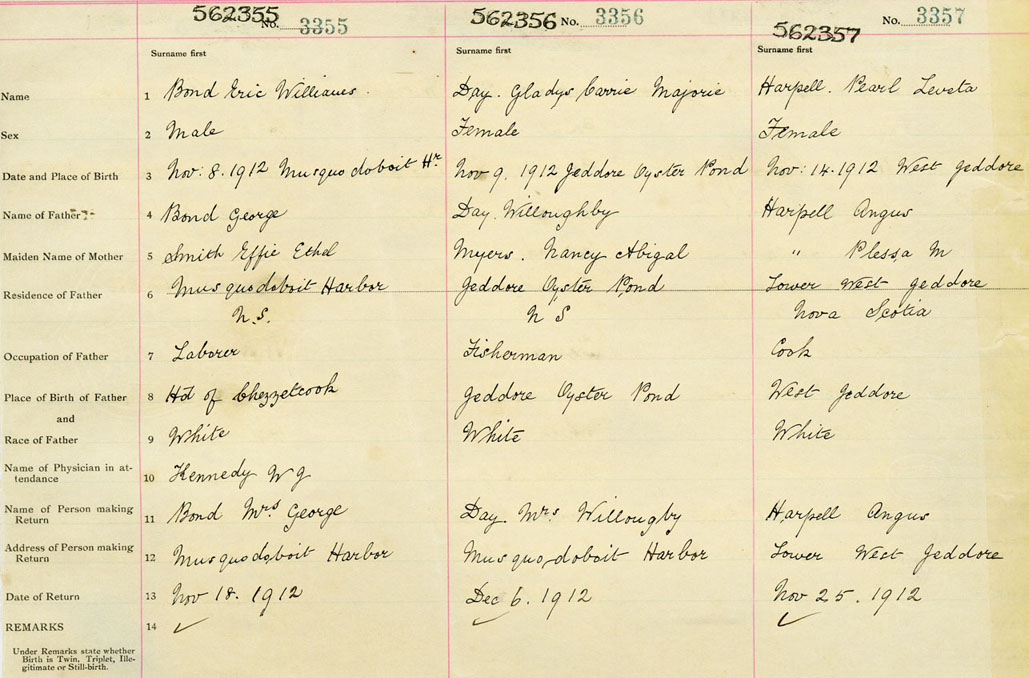 562355 No. 3355
562356 No. 3356
562357 No. 3357
Surname first Surname first Surname first
Name 1 Bond Eric Williams. Day. Gladys Carrie Majorie Harpell. Pearl Leveta
Sex 2 Male Female Female
Date and Place of Birth 3 Nov: 8. 1912 Musquodoboit Hr Nov 9. 1912 Jeddore Oyster Pond Nov: 14. 1912 West Jeddore
Name of Father 4 Bond George Day. Willoughby Harpell Angus
Maiden Name of Mother 5 Smith Effie Ethel Myers. Nancy Abigal " Plessa M
Residence of Father 6 Musquodoboit Harbor Jeddore Oyster Pond Lower West Jeddore
N.S. N S Nova Scotia
Occupation of Father 7 Laborer Fisherman Cook
Place of Birth of Father 8 Hd of Chezzetcook Jeddore Oyster Pond West Jeddore
and
Race of Father 9 White White White
Name of Physician in at-
tendance 10 Kennedy W J
Name of Person making
Return 11 Bond Mrs George Day. Mrs Willougby Harpell Angus
Address of Person making
Return 12 Musquodoboit Harbor Musquodoboit Harbor Lower West Jeddore
Date of Return 13 Nov 18. 1912 Dec 6. 1912 Nov 25. 1912
REMARKS 14 ✓ ✓ ✓
Under Remarks state whether
Birth is Twin, Triplet, Ille-
gitimate or Still-birth.